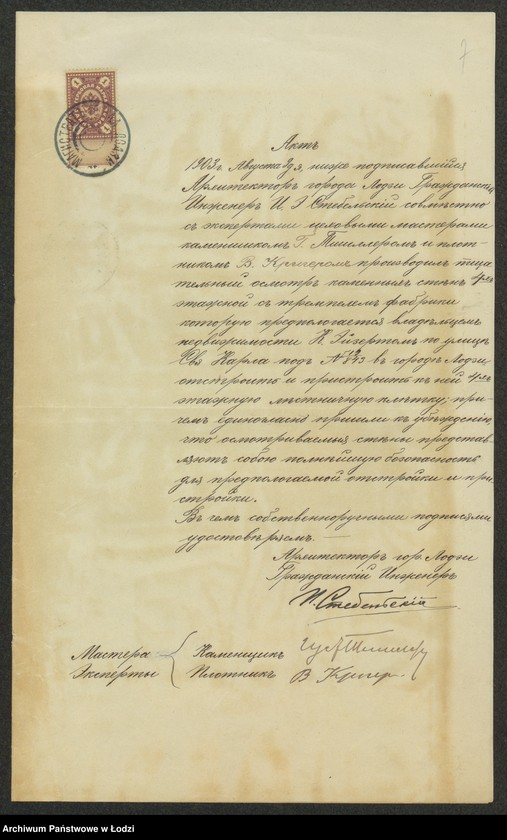 7
1
1
Актъ
1903 г. Августа дня, ниже подписавшійся
Архитекторъ города Лодзи Гражданскій
Инженеръ И. Стебельскій совмѣстно
съ экспертами цеховыми мастерами
каменщикомъ Г. Тишлеромъ и плот-
никомъ В. Кригеромъ производилъ тща
тельный осмотръ каменныхъ стѣнъ 4хъ
этажной съ тремпелемъ фабрики
которую предполагается владѣльцемъ
недвижимости К. Эйзертомъ по улицѣ
Свя Карла подъ № въ городѣ Лодзи,
отстроить и пристроить къ ней 4хъ
этажную лѣстничную клѣтку, при-
чемъ единогласно пришли къ убѣжденію,
что осматриваемыя стѣны представ-
ляютъ собою полнѣйшую безопасность
для предполагаемой отстройки и при
стройки.
Въ чемъ собственноручными подписями
удостовѣряемъ.
Архитекторъ гор. Лодзи
Гражданскій Инженеръ
И. Стебельскій
Мастера Каменщикъ
Эксперты Плотникъ В Кригер
Archiwum Państwowe w Łodzi